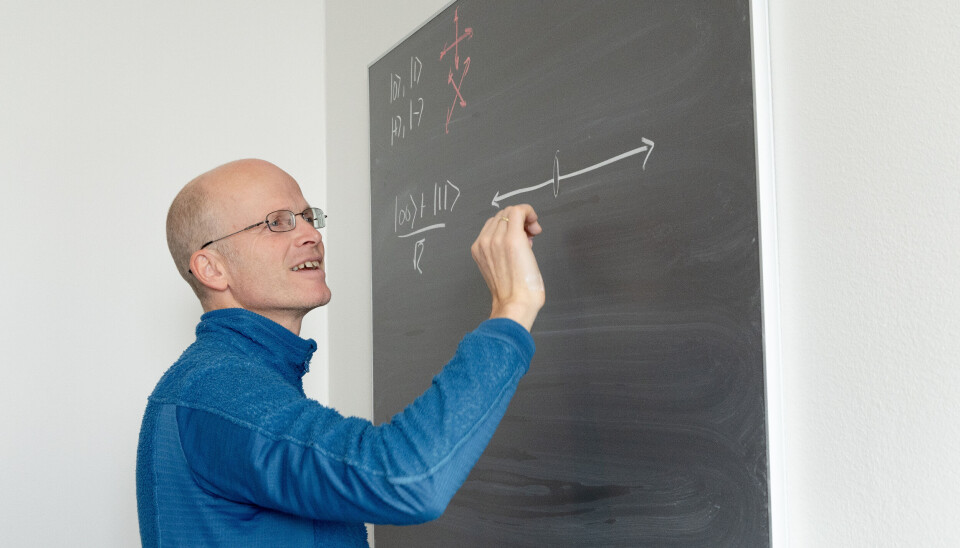 |0⟩, |1⟩
|+⟩, |-⟩
|00⟩+|11⟩
√2